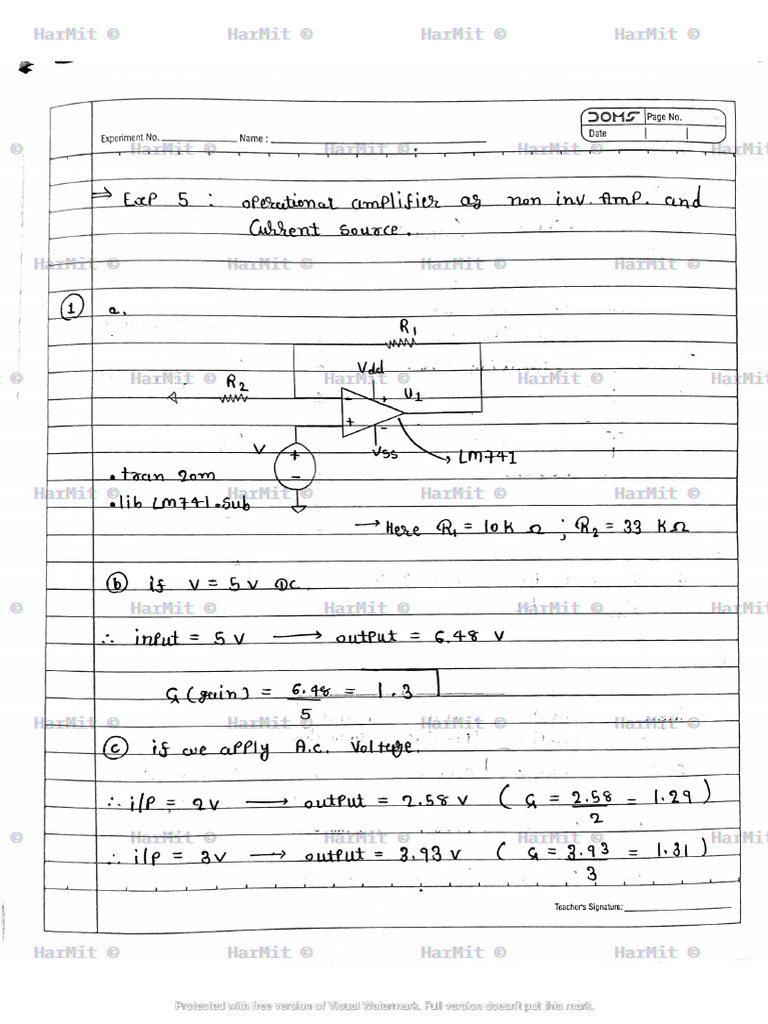 HarMit © HarMit © HarMit © HarMit ©
DOMS Page No.
Date
Experiment No. Name :
© HarMit © HarMit © HarMit © HarMit
⇒ Exp 5 : operational amplifier as non inv. Amp. and
Current source.
HarMit © HarMit © HarMit © HarMit ©
① a.
R1
Vdd
© HarMit © HarMit © HarMit © HarMit
R2
- + U1
+ -
V + - Vss → LM741
.tran 20m
HarMit © HarMit © HarMit © HarMit ©
.lib LM741.sub
→ Here R1 = 10K Ω ; R2 = 33 KΩ
ⓑ if V = 5V DC.
© HarMit © HarMit © HarMit © HarMit
∴ input = 5 V ⟶ output = 6.48 V
G (gain) = 6.48 / 5 = 1.3
HarMit © HarMit © HarMit © HarMit ©
ⓒ if we apply A.c. Voltage.
∴ i/p = 2V ⟶ output = 2.58 V ( G = 2.58 / 2 = 1.29 )
© HarMit © HarMit © HarMit © HarMit
∴ i/p = 3V ⟶ output = 3.93 V ( G = 3.93 / 3 = 1.31 )
Teacher's Signature:
HarMit © HarMit © HarMit © HarMit ©
Protected with free version of Visual Watermark. Full version doesn't put this mark.